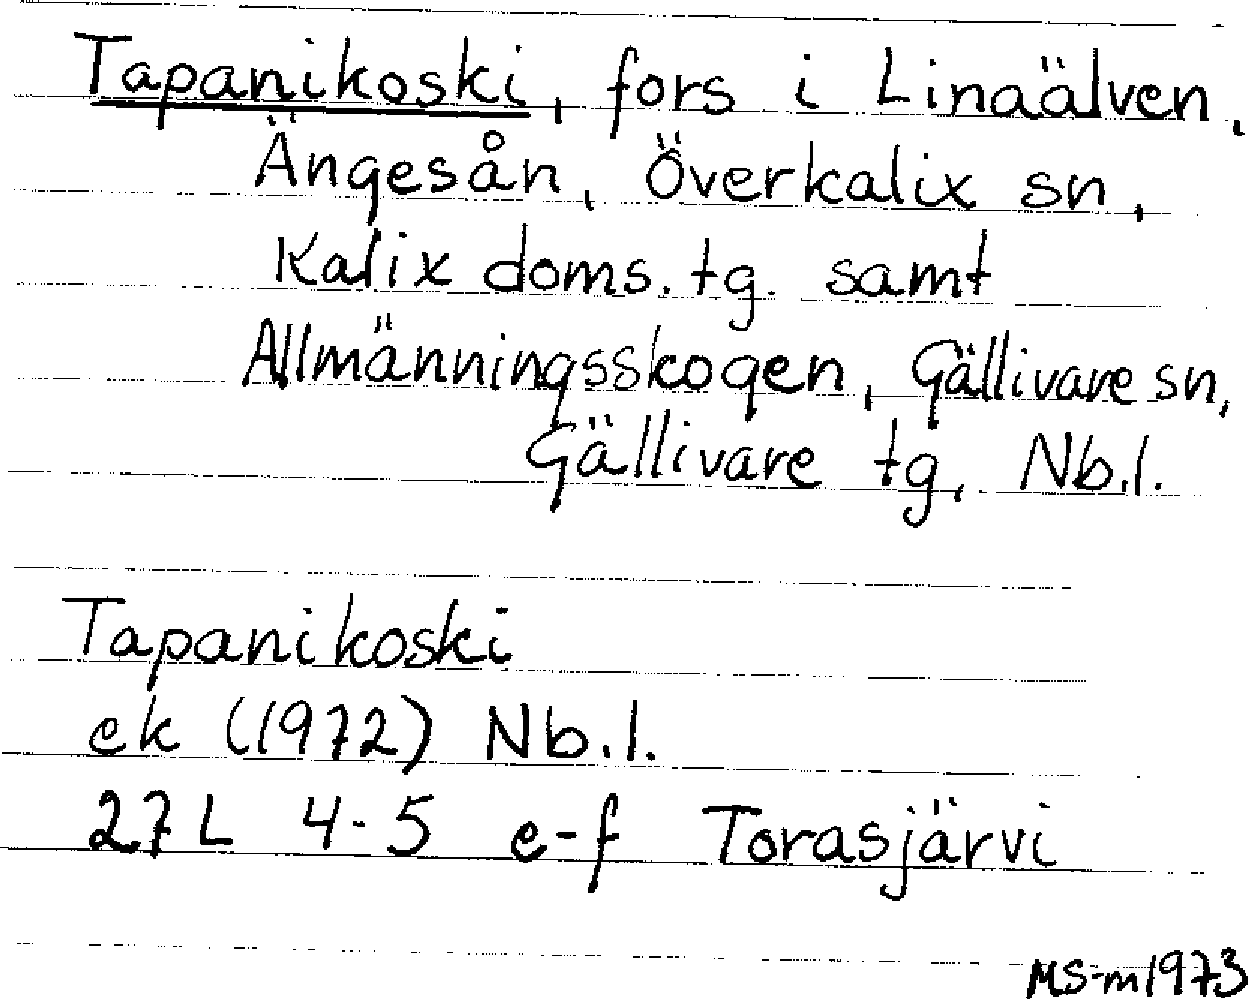 Tapanikoski, fors i Linaälven,
Ängesån, Överkalix sn,
Kalix doms. tg. samt
Allmänningsskogen, Gällivare sn,
Gällivare tg, Nb.l.
Tapanikoski
ek (1972) Nb.l.
27L 4-5 e-f Torasjärvi
MS-m1973